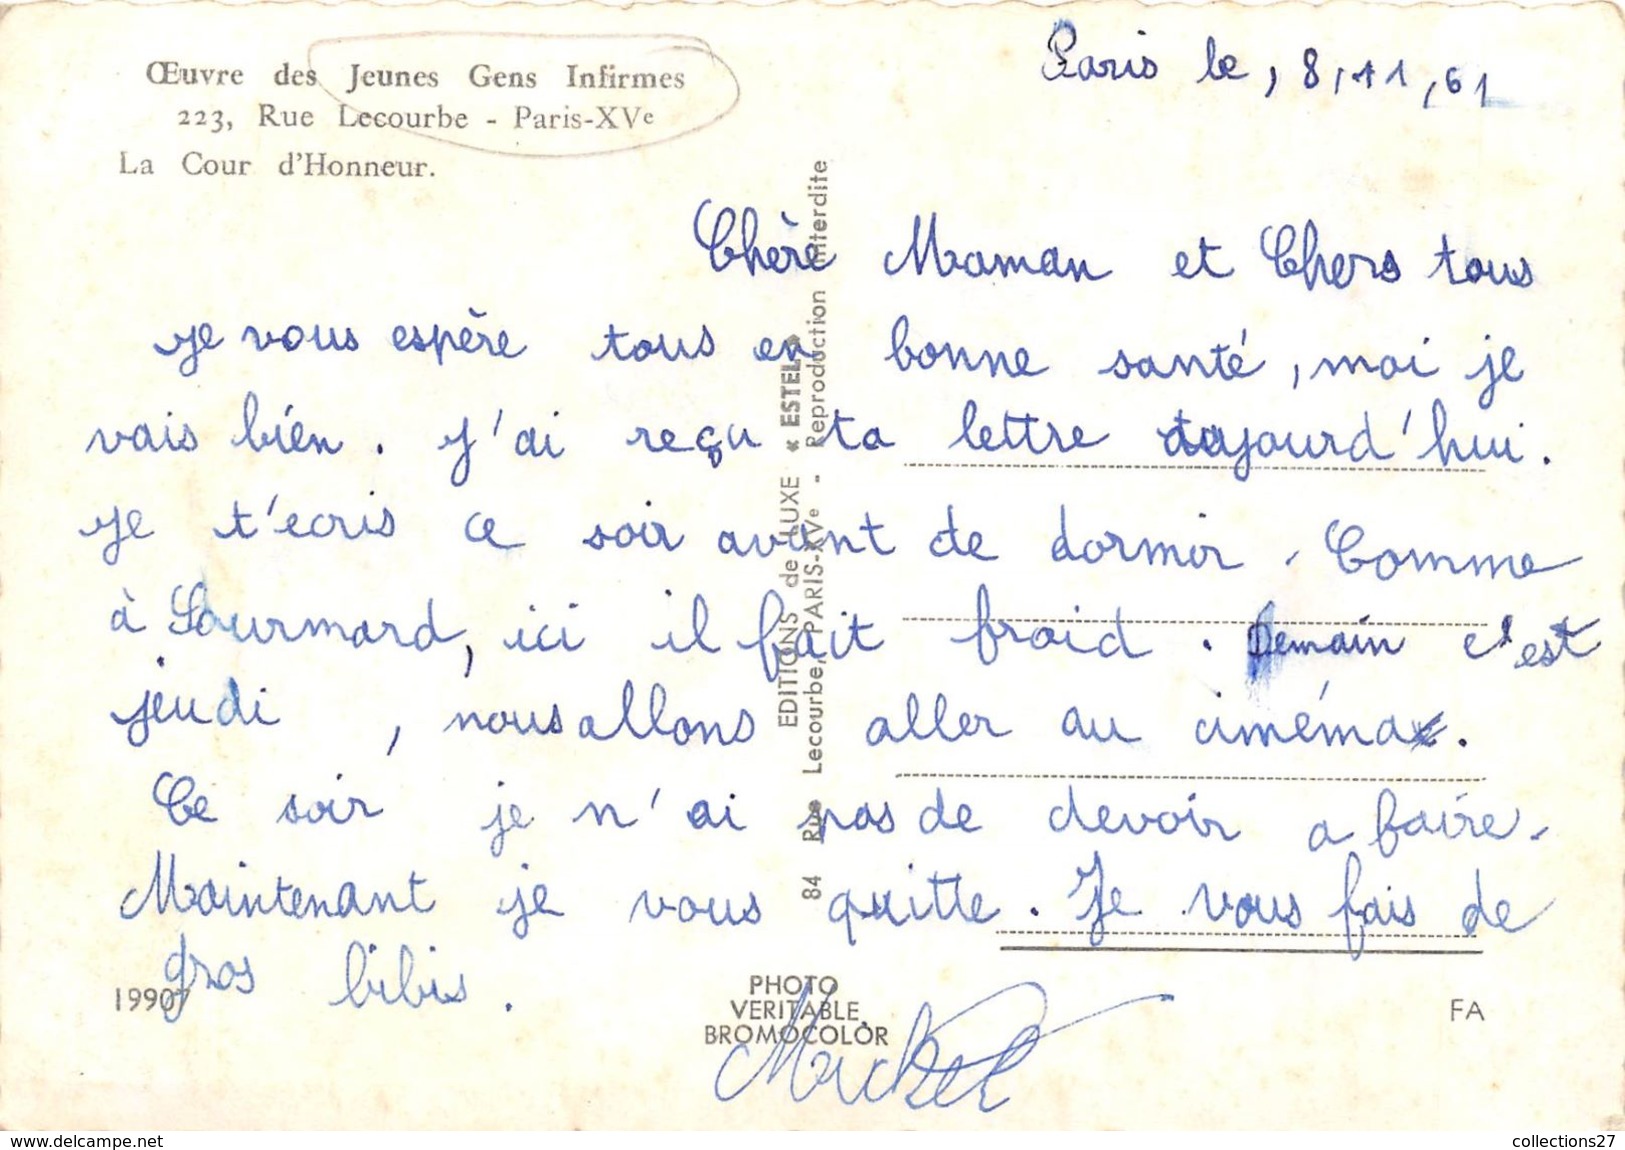 Œuvre des Jeunes Gens Infirmes
223, Rue Lecourbe - Paris-XVe
La Cour d'Honneur.
Paris le, 8, 11, 61
Chère Maman et Chers tous
je vous espère tous en bonne santé, moi je
vais bien. J'ai reçu ta lettre aujourd'hui.
Je t'ecris ce soir avant de dormir. Comme
à Lourmard, ici il fait froid. Demain c'est
jeudi, nous allons aller au cinéma.
Ce soir je n'ai pas de devoir a faire.
Maintenant je vous quitte. Je vous fais de
gros bibis.
Michel
EDITIONS de LUXE « ESTEL »
84 Rue Lecourbe, PARIS-XVe - Reproduction interdite
19907
PHOTO
VERITABLE
BROMOCOLOR
FA
www.delcampe.net
collections27